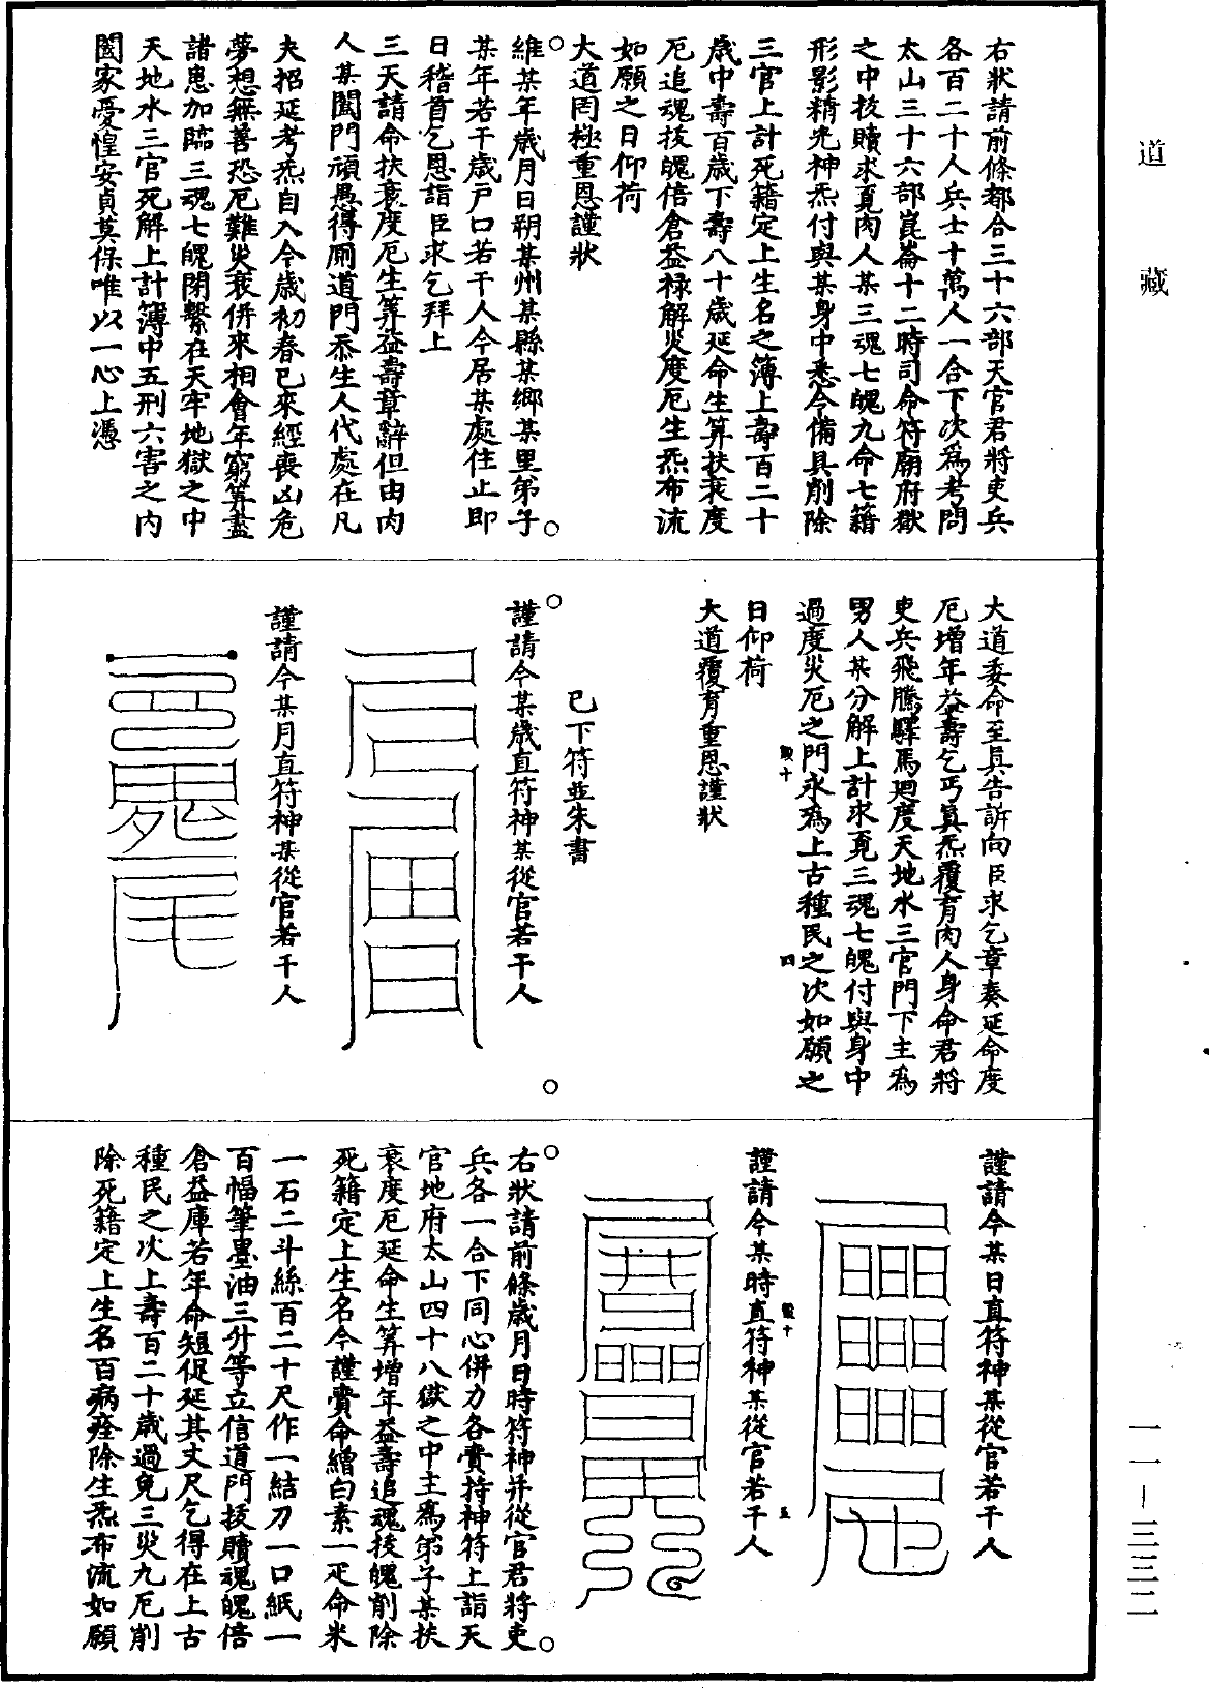 道藏
右狀請前條都合三十六部天官君將吏兵
各百二十人兵士十萬人一合下次為考問
太山三十六部崑崙十二時司命符廟府獄
之中拔贖求覓肉人某三魂七魄九命七籍
形影精光神炁付與某身中悉令備具削除
三官上計死籍定上生名之簿上壽百二十
歲中壽百歲下壽八十歲延命生算扶衰度
厄追魂拔魄倍倉益祿解災度厄生炁布流
如願之日仰荷
大道罔極重恩謹狀
維某年歲月日朔某州某縣某鄉某里弟子
某年若干歲戶口若干人今居某處住止即
日稽首乞恩詣臣求乞拜上
三天請命扶衰度厄生算益壽章辭但由肉
人某闔門頑愚得廁道門忝生人代處在凡
夫招延考炁自入今歲初春已來經喪凶危
夢想無善恐厄難災衰併來相會年窮算盡
諸患加臨三魂七魄閉繫在天牢地獄之中
天地水三官死解上計簿中五刑六害之內
闔家憂惶安貞莫保唯以一心上憑
大道委命至真告訴向臣求乞章奏延命度
厄增年益壽乞丐真炁覆育肉人身命君將
吏兵飛騰驛馬廻度天地水三官門下主為
男人某分解上計求覓三魂七魄付與身中
過度災厄之門永為上古種民之次如願之
日仰荷
四
大道覆育重恩謹狀
已下符並朱書
謹請今某歲直符神某從官若干人
謹請今某月直符神某從官若干人
謹請今某日直符神某從官若干人
五
謹請今某時直符神某從官若干人
右狀請前條歲月日時符神并從官君將吏
兵各一合下同心併力各賫持神符上詣天
官地府太山四十八獄之中主為弟子某扶
衰度厄延命生算增年益壽追魂拔魄削除
死籍定上生名今謹賫命繒白素一疋命米
一石二斗絲百二十尺作一結刀一口紙一
百幅筆墨油三升等立信道門拔贖魂魄倍
倉益庫若年命短促延其丈尺乞得在上古
種民之次上壽百二十歲過免三災九厄削
除死籍定上生名百病痊除生炁布流如願
一一—三三二